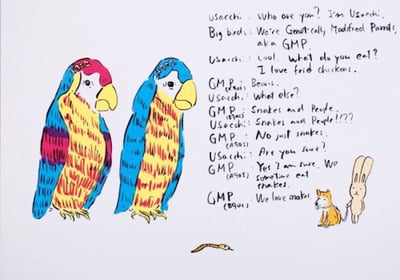 Usacchi : Who are you? I'm Usacchi.
Big birds : We're Genetically Modified Parrots,
aka GMP.
Usacchi : Cool. What do you eat?
I love fried chickens.
GMP : Beans.
Usacchi : What else?
GMP : Snakes and People.
Usacchi : Snakes and People!??
GMP : No just snakes.
Usacchi : Are you sure?
GMP : Yes I am sure. We
sometime eat
snakes.
GMP : We love snakes